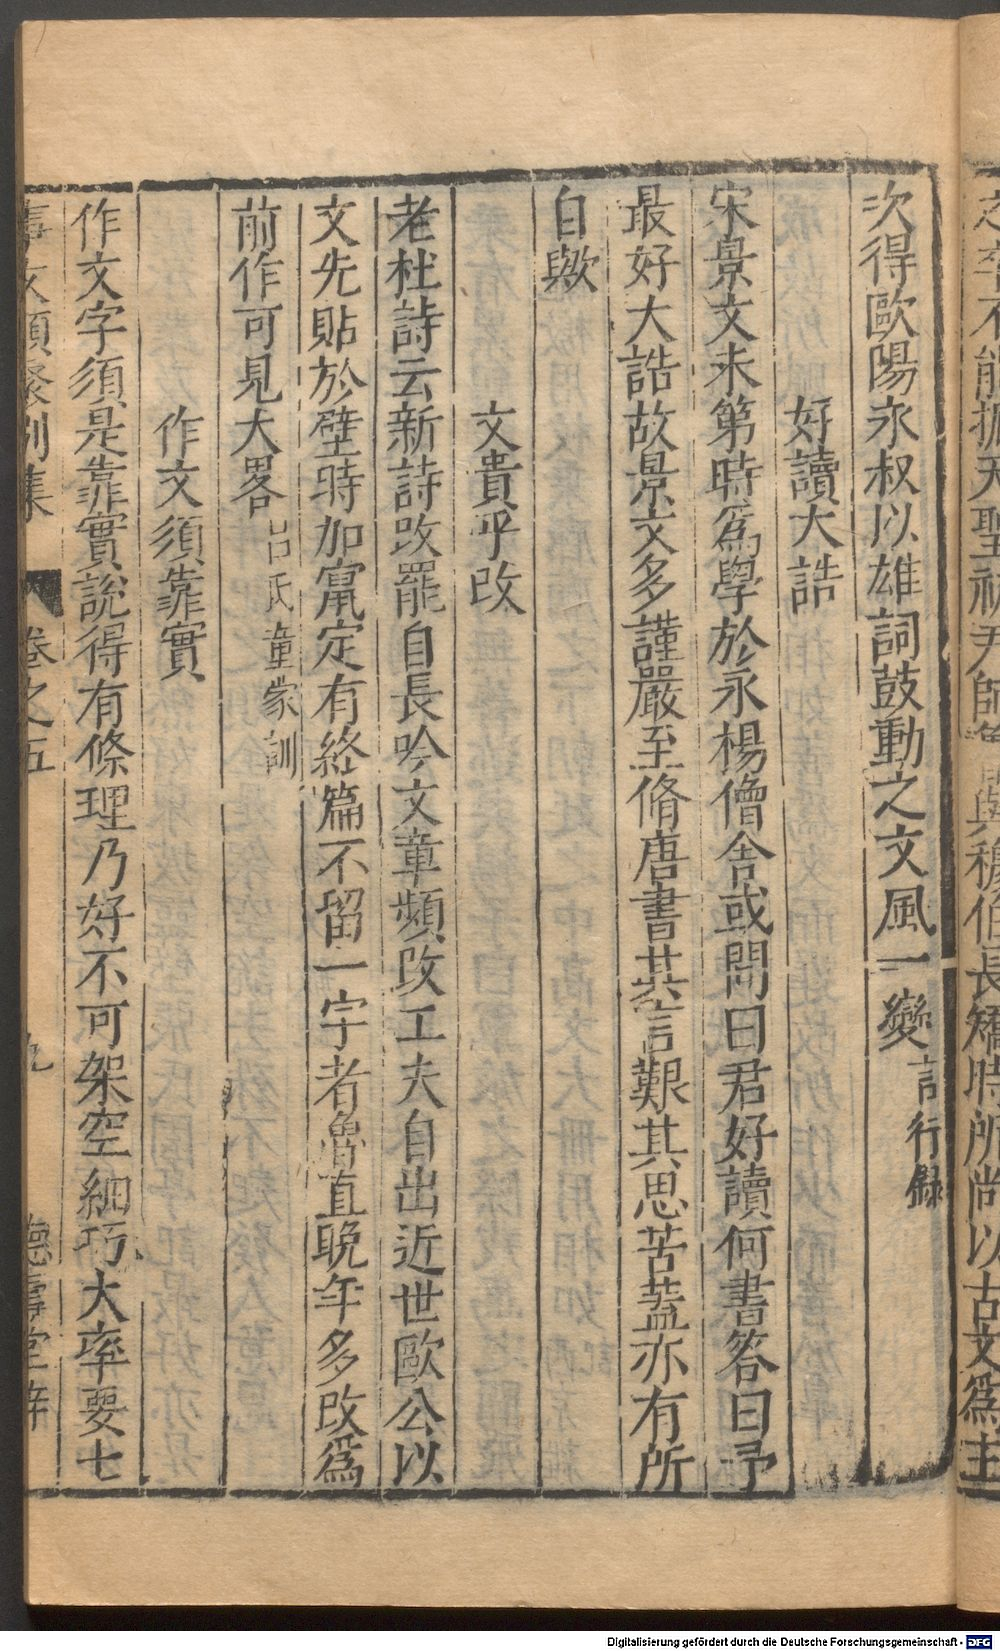 之卒不能振天聖初尹師魯與穆伯長矯時所尚以古文爲主
次得歐陽永叔以雄詞鼓動之文風一變言行録
好讀大誥
宋景文未第時爲學於永楊僧舍或問曰君好讀何書答曰予
最好大誥故景文多謹嚴至脩唐書其言艱其思苦蓋亦有所
自歟
文貴乎改
老杜詩云新詩改罷自長吟文章頻改工夫自出近世歐公以
文先貼於壁時加竄定有終篇不留一字者魯直晚年多改爲
前作可見大畧呂氏童蒙訓
作文須靠實
作文字須是靠實說得有條理乃好不可架空細巧大率要七
事文類聚別集 卷之五 九 德壽堂梓
Digitalisierung gefördert durch die Deutsche Forschungsgemeinschaft - DFG